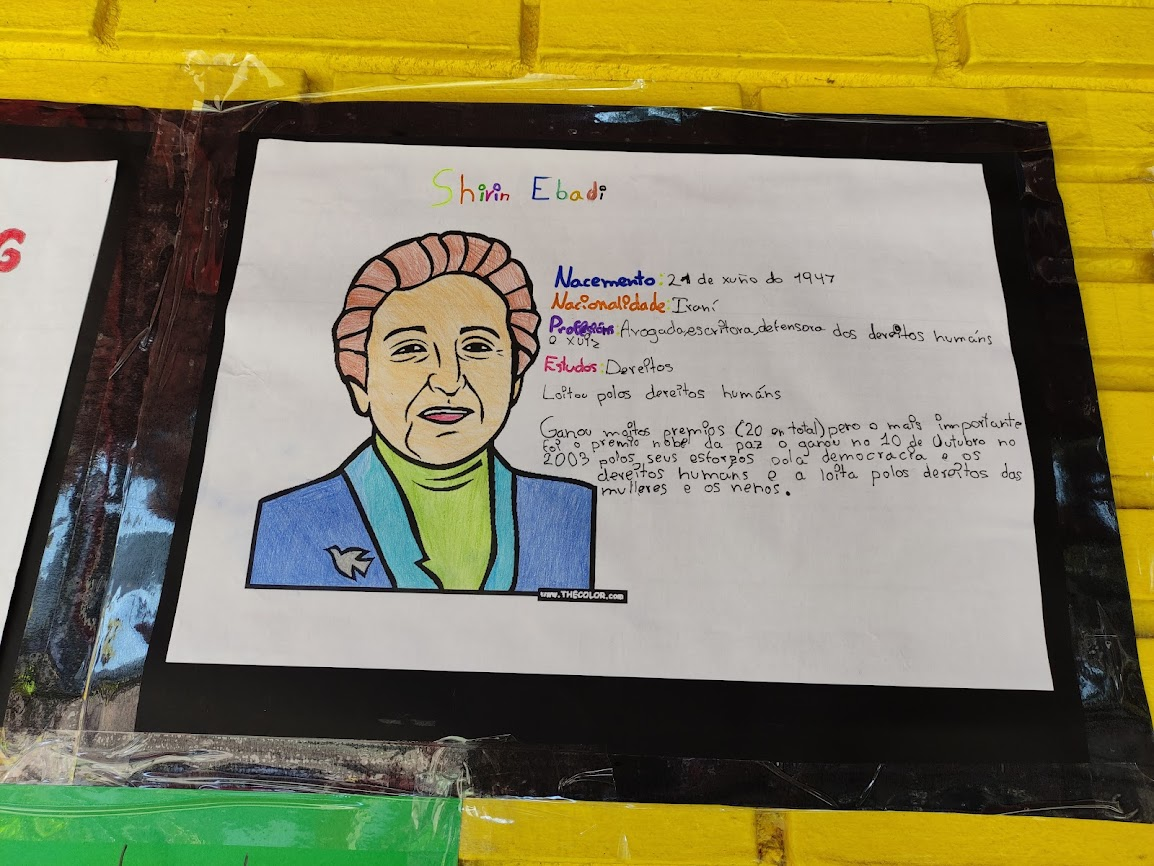 G
Shirin Ebadi
Nacemento: 21 de xuño do 1947
Nacionalidade: Iraní
Profesión: Avogada,escritora,defensora dos dereitos humáns
e xuíz
Estudos: Dereitos
Loitou polos dereitos humáns
Ganou moitos premios (20 en total) pero o mais importante
foi o premio nobel da paz o ganou no 10 de Outubro no
2003 polos seus esforzos pola democracia e os
dereitos humans e a loita polos dereitos das
mulleres e os nenos.
www.THECOLOR.com